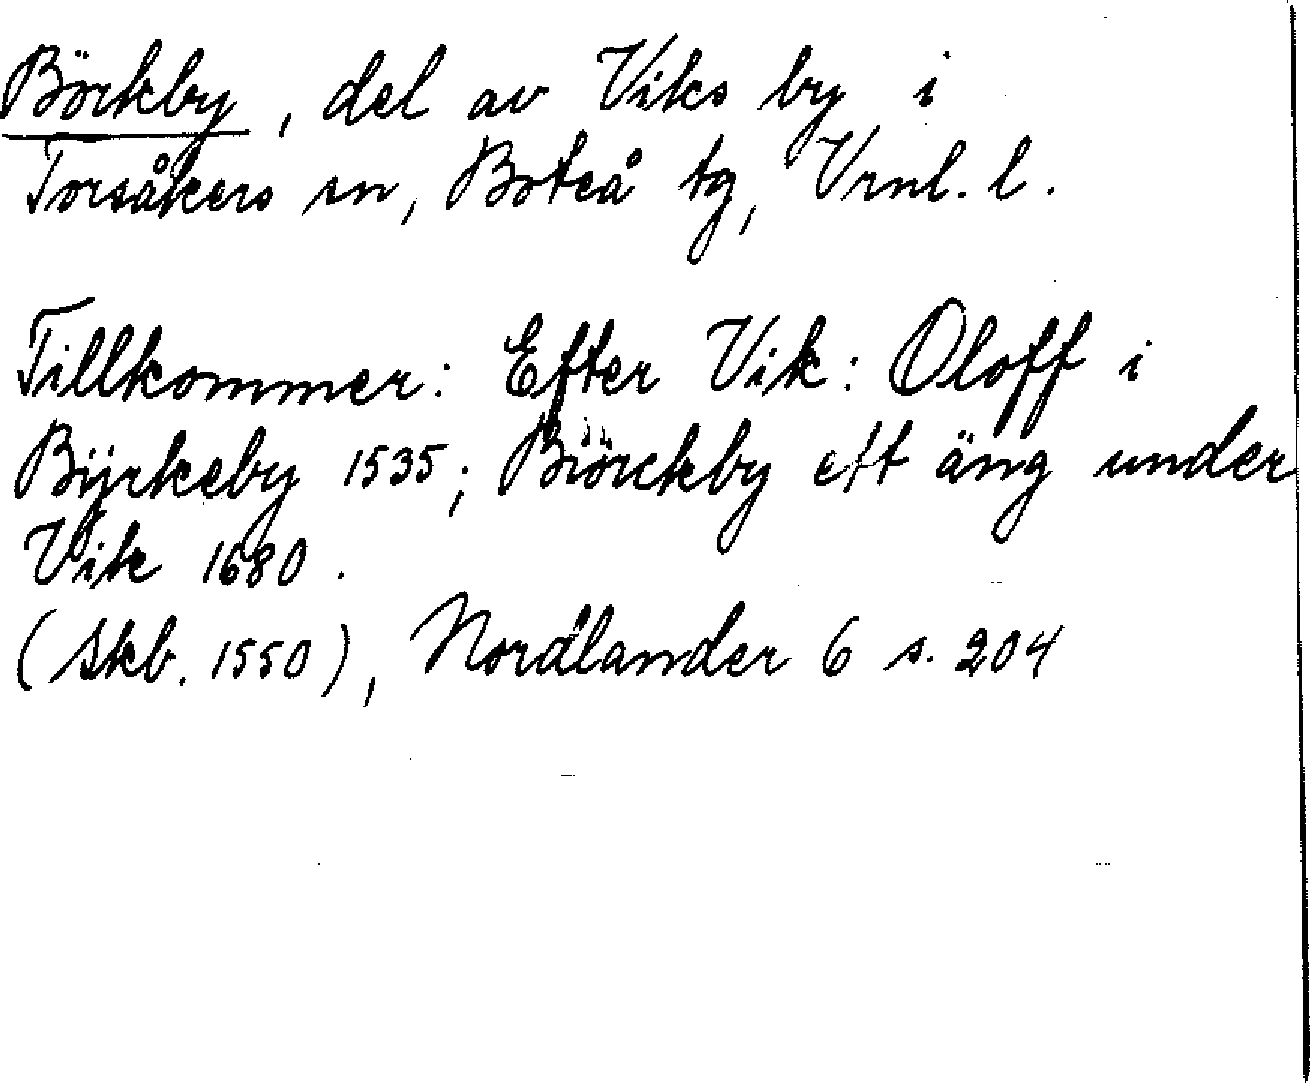 Börkby, del av Viks by i
Torsåkers sn, Boteå tg, Vrnl. l.
Tillkommer: Efter Vik: Oloff i
Bÿrkeby 1535; Biörckby ett äng under
Vik 1680.
(Skb. 1550), Nordlander 6 s. 204